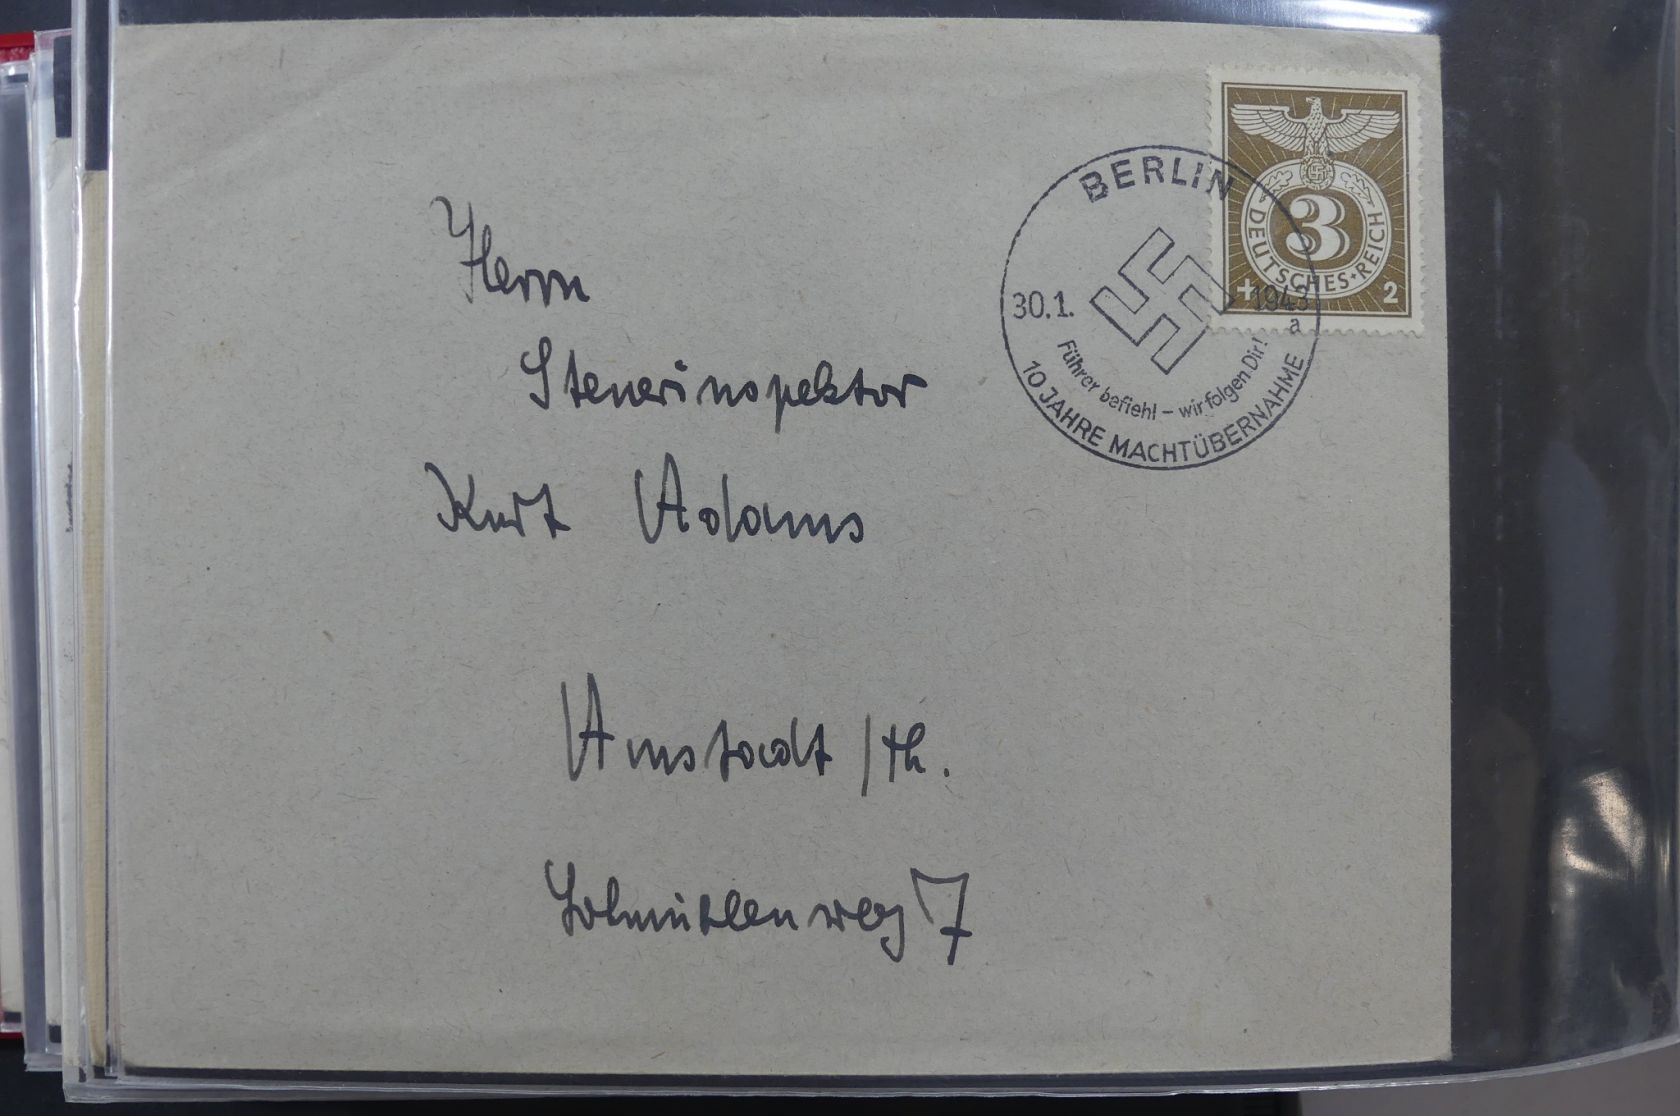 BERLIN
30.1. 1943
a
Führer befiehl – wir folgen Dir!
10 JAHRE MACHTÜBERNAHME
3
DEUTSCHES REICH
+ 2
Herrn
Steuerinspektor
Kurt Adams
Arnstadt /Th.
7